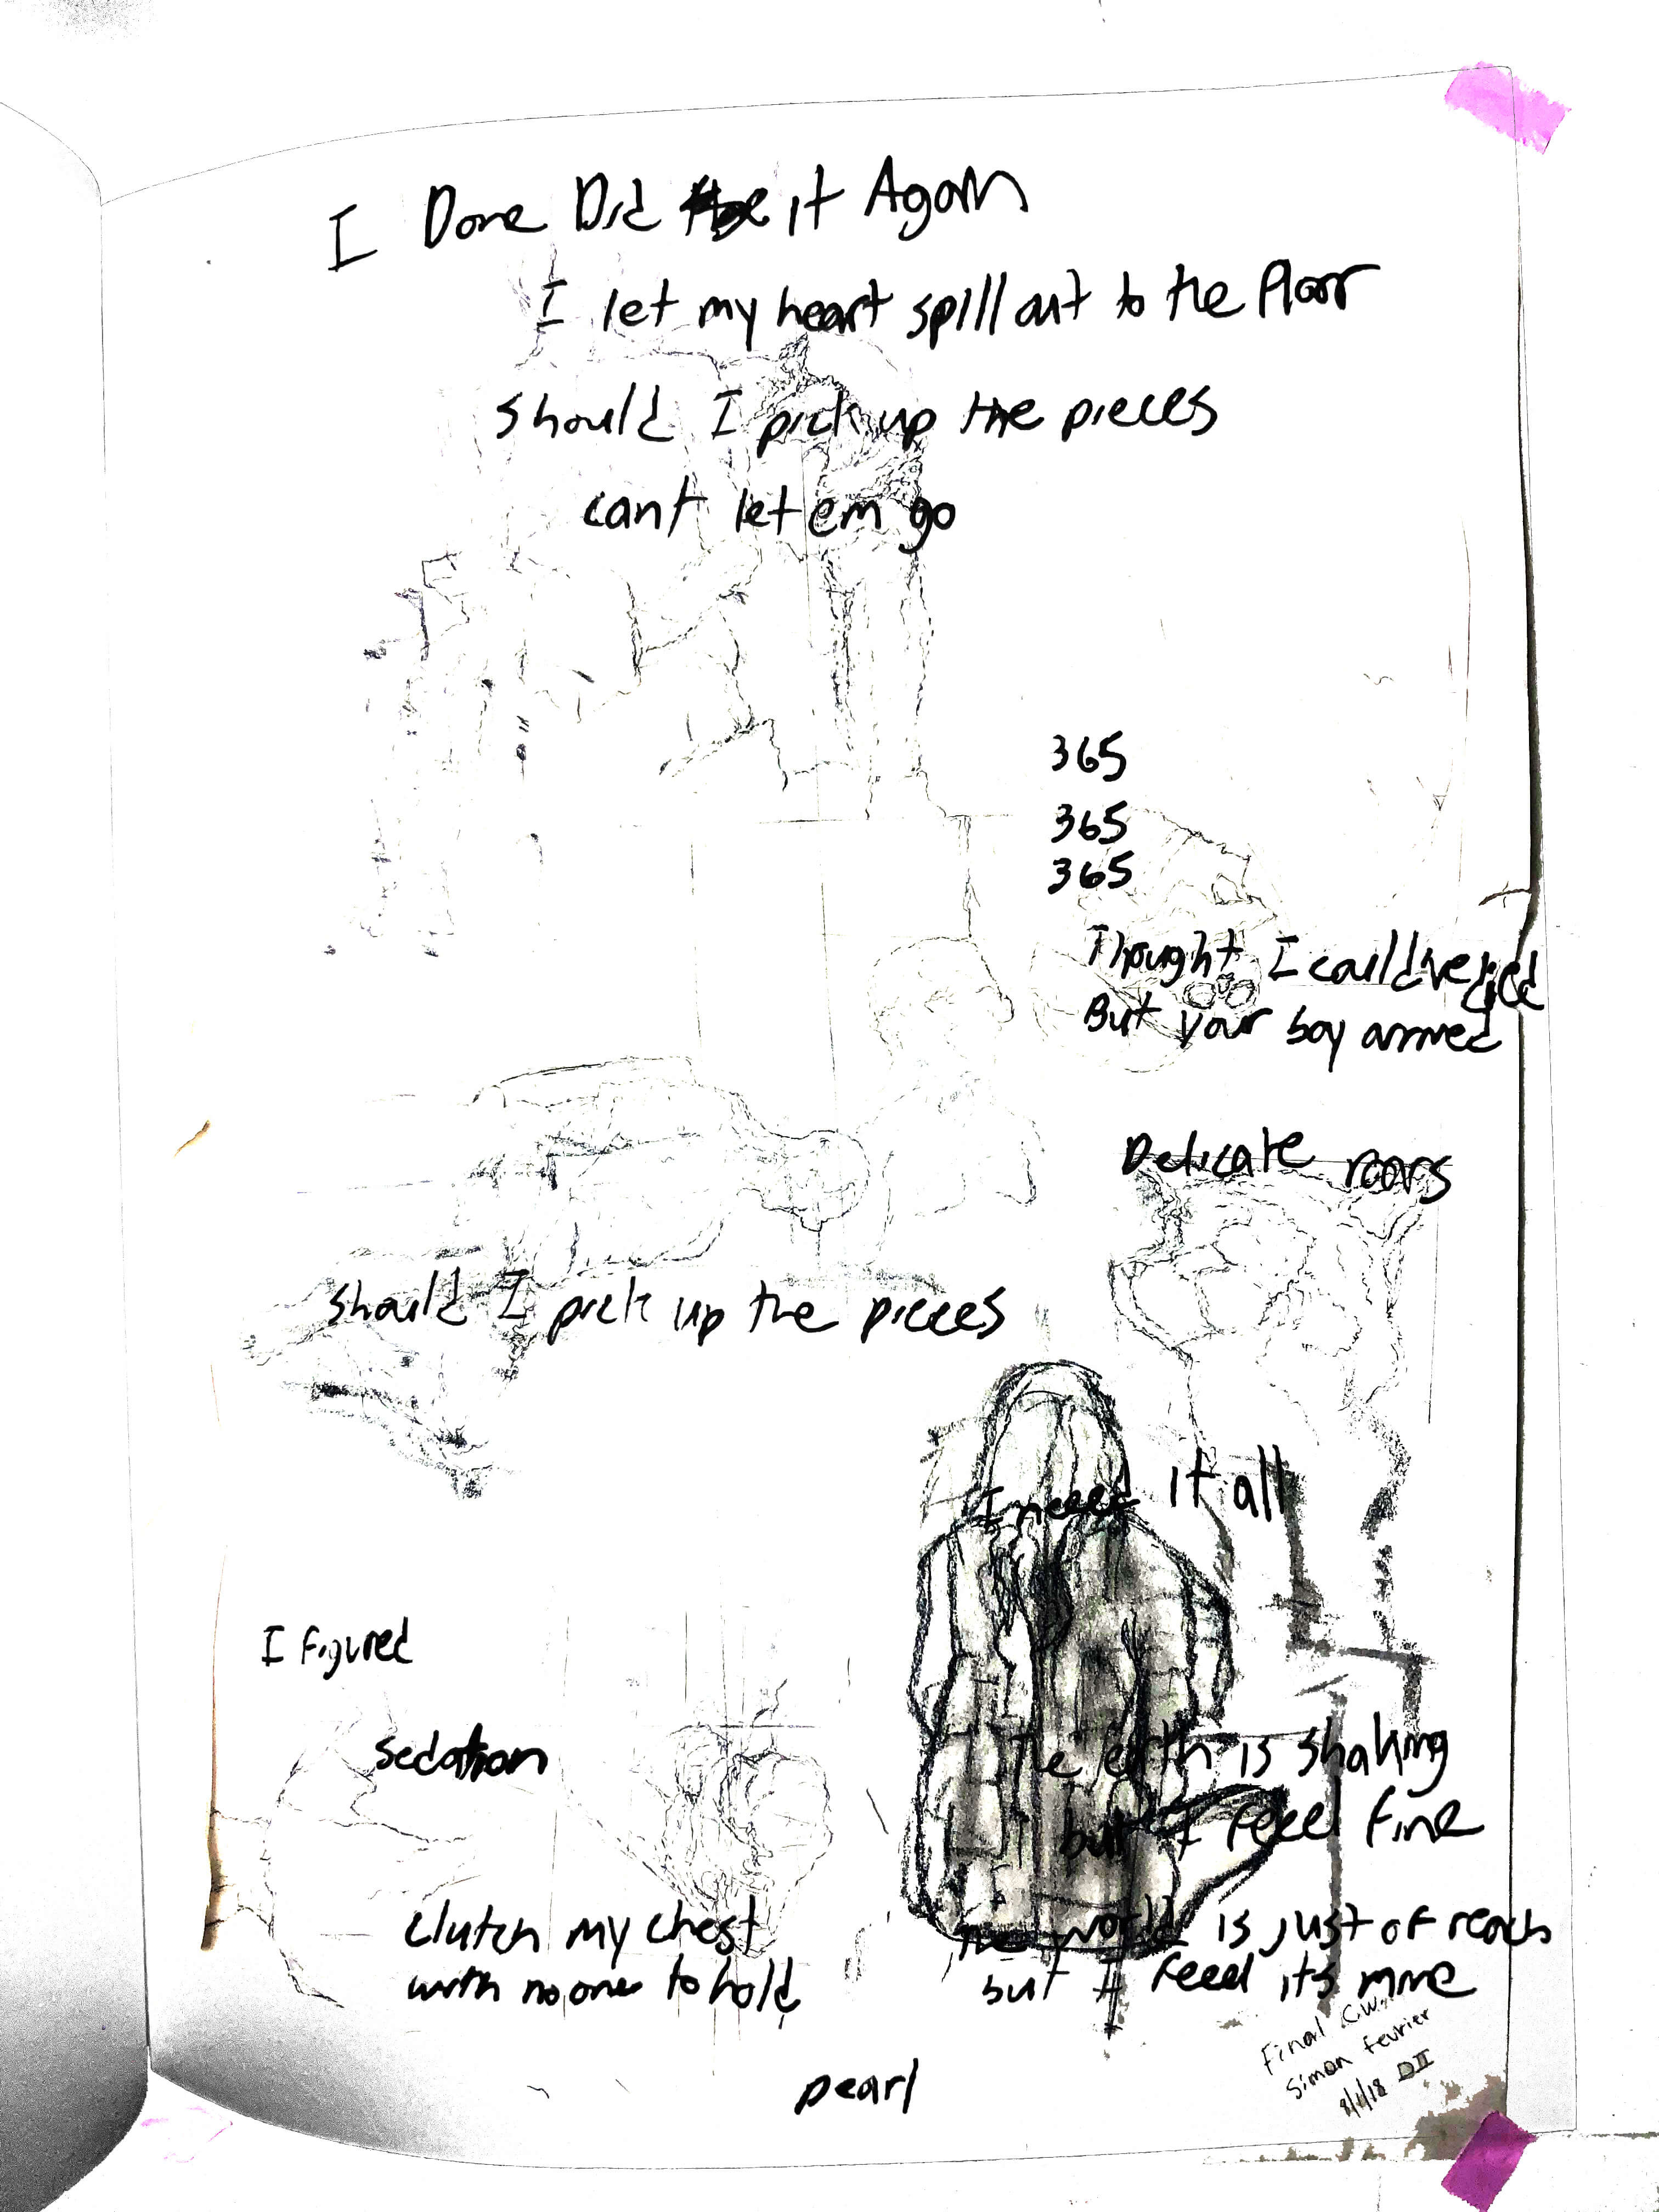 I Done Did it Again
I let my heart spill out to the floor
should I pick up the pieces
cant let em go
365
365
365
Thought I could've died
But your boy arrived
Delicate roars
should I pick up the pieces
I need it all
I figured
sedation
The earth is shaking
but I feel fine
clutch my chest
with no one to hold
The world is just of reach
but I feeel its mine
pearl
Final C.W.
Simon Fevrier
DII